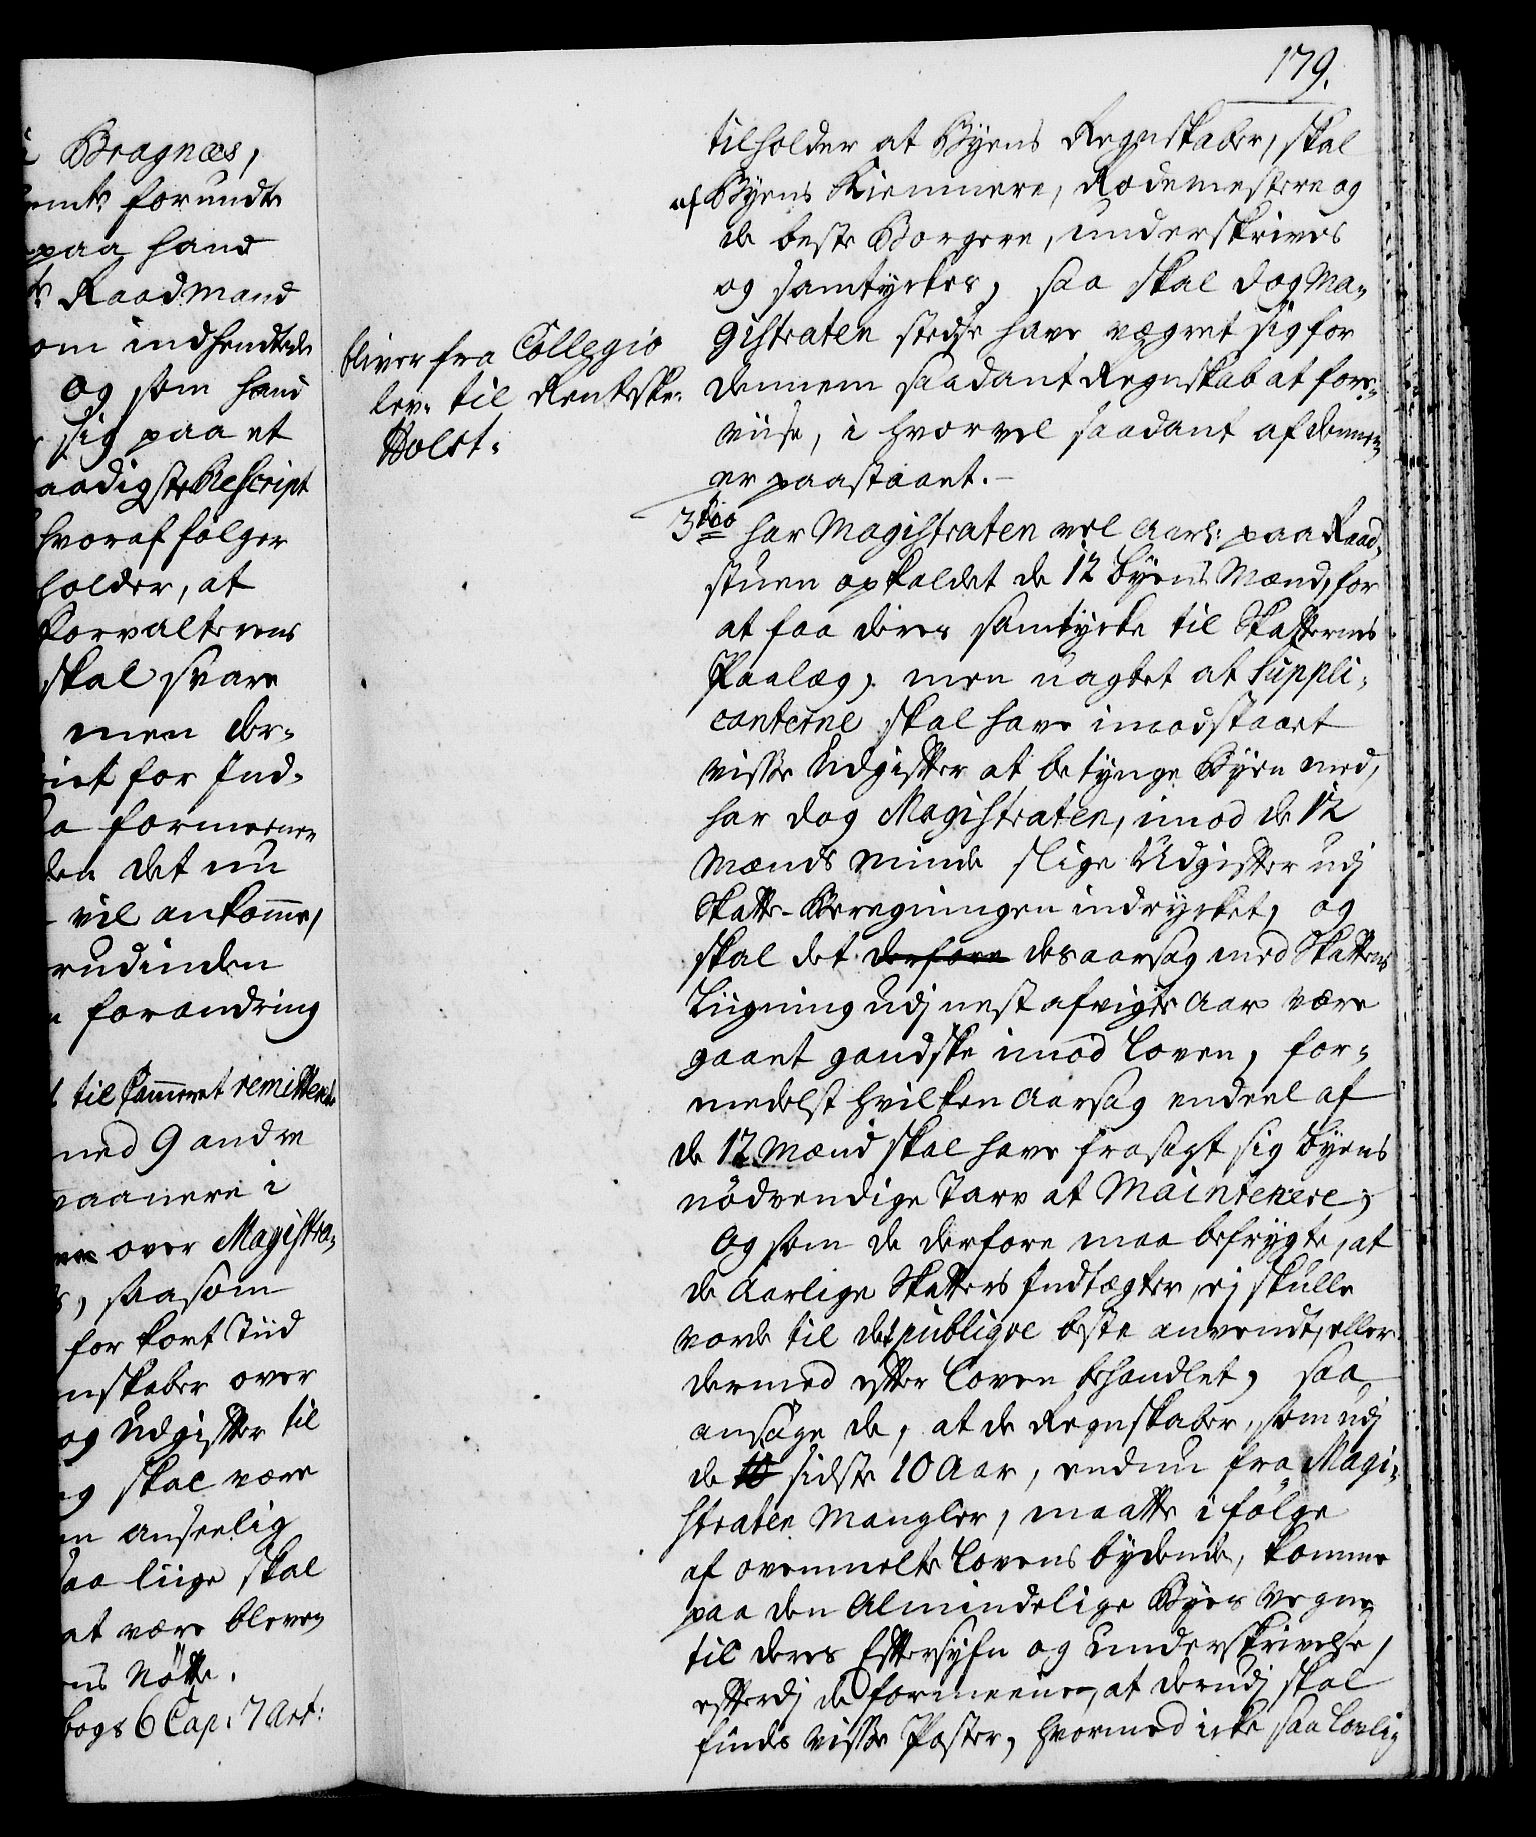 179.
Bragnæs,
forundt
paa hand
Raadmand
om indhendtede
og som hand
sig paa et
aadigste Rescript
hvoraf følger
holder, at
forvalterens
skal svare
men der-
for Ind-
a formeener
det nu
vil ankomme,
rudinden
forandring
til Cammeret remitterede
med 9 andre
vaanere i
over Magistra-
, saasom
for kort Tiid
nskaber over
og Udgifter til
og skal være
anseelig
saa liige skal
at være bleven
Nötte.
bogs 6 Cap: 7 Art:
bliver fra Collegio
lev: til Renteskr:
Holst.
tilholder at Byens Regnskaber, skal
af Byens Kiemnere, Rodemestere og
de beste Borgere, underskrives
og samtyckes, saa skal dog Ma-
gistraten stedse have vegret sig for
dennem saadant Regnskab at fore-
viise, i hvorvel saadant af dennem
er paastaaet.
3tio har Magistraten vel Aarl: paa Raad-
stuen opkaldet de 12 Byens Mænd, for
at faa deres samtycke til Skatternes
Paalæg, men uagtet at Suppli-
canterne skal have imodstaaet
visse Udgifter at betynge Byen med,
har dog Magistraten, imod de 12
Mænds Minde slige Udgifter udj
Skatte-Beregningen indrycket, og
skal det derfore desaarsag med Skattens
Liigning udj nest afvigte Aar være
gaaet gandske imod Loven, for-
medelst hvilken Aarsag endeel af
de 12 Mænd skal have frasagt sig Byens
nödvendige Tarv at Maintenere,
Og som de derfore maa befrygte, at
de Aarlige Skatters Indtægter, ej skulle
vorde til det publique beste anvendt, eller
dermed efter Loven behandlet, saa
ansöge de, at de Regnskaber, som udj
de 10 sidste 10 Aar, endnu fra Magi-
straten Mangler, maatte i fölge
af ovenmelte Lovens bydende, komme
paa den Almindelige Byes Vegne
til deres Eftersyfn og Underskrivelse,
efterdj de formeener, at derudj skal
findes visse Poster, hvormed icke saa Lovlig